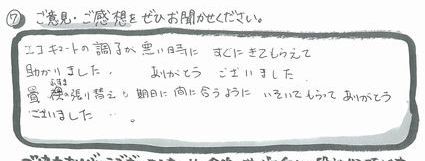 ⑦ ご意見・ご感想をぜひお聞かせください。
エコキュートの調子が悪い時に すぐにきてもらえて
助かりました。 ありがとう ございました
ふすま
畳 襖の張り替えも期日に間に合うように いそいでもらって ありがとう
ございました 。